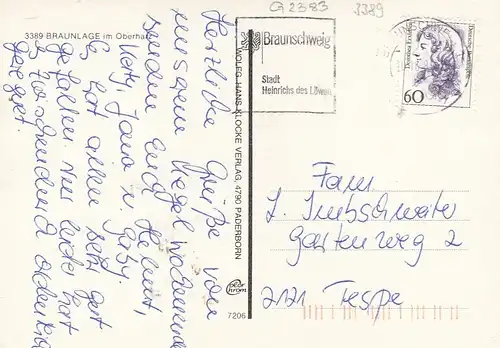 G2383
3389
3389 BRAUNLAGE im Oberharz
Herzliche Grüße vom
unserem Kegelwochenende
senden Euch Helmut,
Uety, Jana u. Gaby.
Es hat allen sehr gut
gefallen. Nur leider hat
es Freitag und ordentlich
geregnet.
WOLFG. HANS KLOCKE VERLAG, 4790 PADERBORN
Braunschweig
Stadt
Heinrichs des Löwen
Deutsche Bundespost
60
Fam.
J. Imbschweiler
Gartenweg 2
2121 Tespe
7206